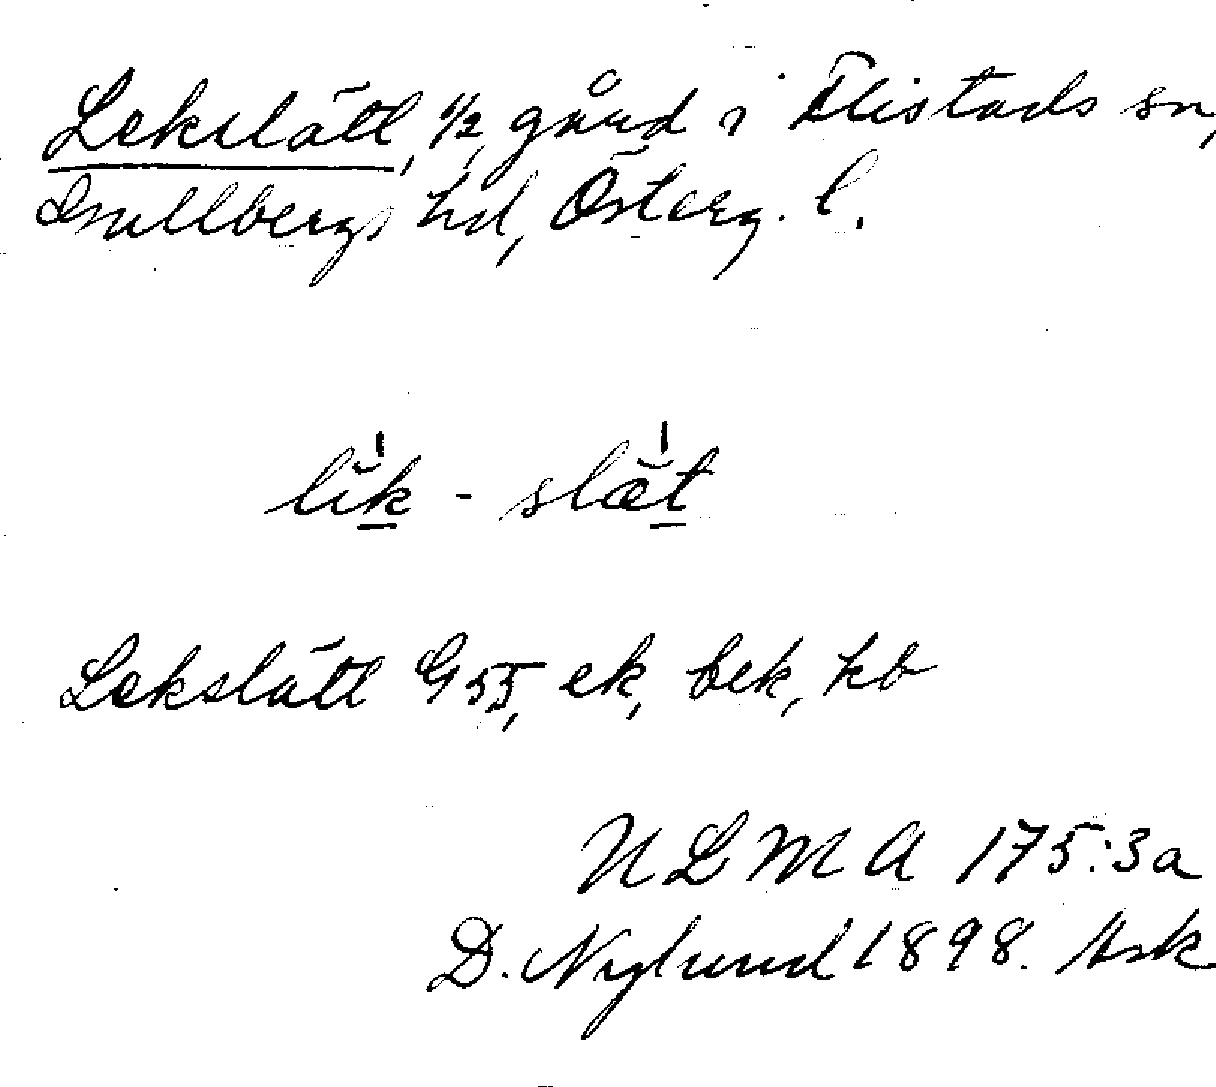 Lekslätt, 1/2 gård i Flistads sn,
Gullbergs hd, Österg. l.
lik - slæt
Lekslätt G 55, ek, bek, hb
ULMA 175:3a
D. Nylund 1898. Ask